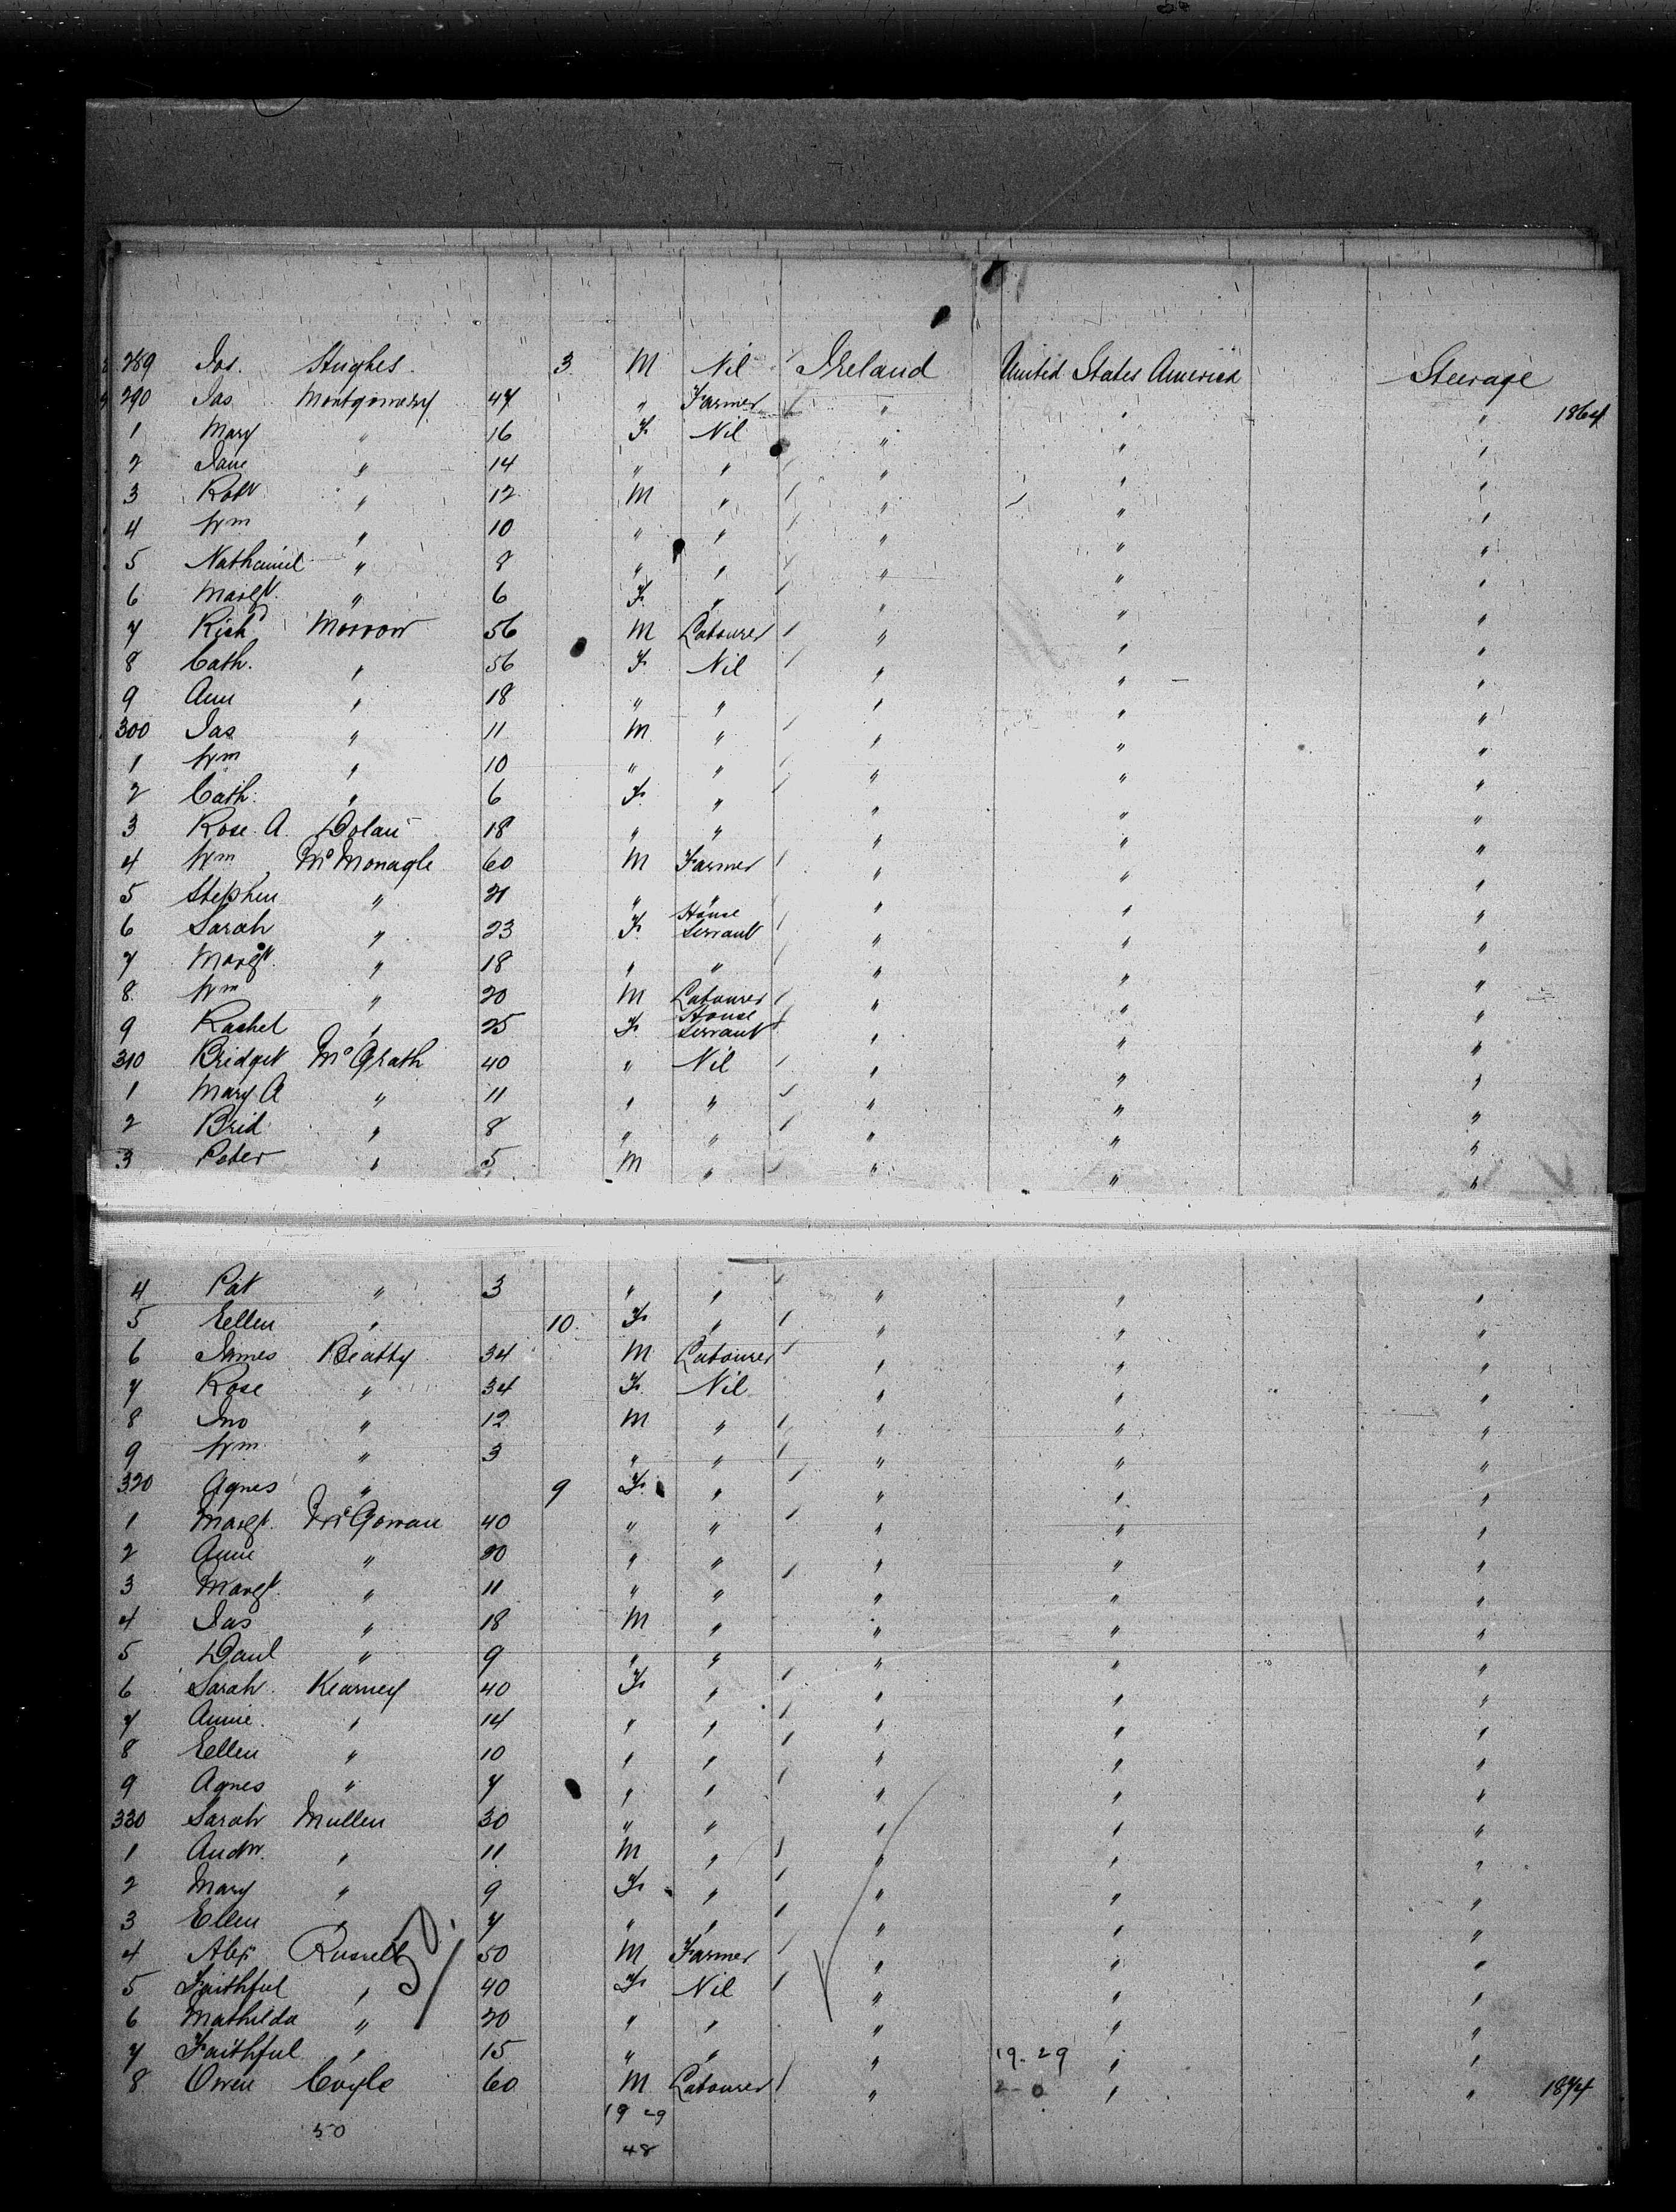 289 Jas. Hughes. 3 M Nil Ireland United States America Steerage
290 Jas Montgomery 47 " Farmer " " " 1864
1 Mary " 16 F. Nil " " "
2 Jane " 14 " " " " "
3 Robt " 12 M " " " "
4 Wm " 10 " " " " "
5 Nathaniel " 8 " " " " "
6 Margt. " 6 F. " " " "
7 Richd Morrow 56 M Labourer " " "
8 Cath. " 56 F. Nil " " "
9 Ann " 18 " " " " "
300 Jas " 11 M " " " "
1 Wm " 10 " " " " "
2 Cath. " 6 F. " " " "
3 Rose A. Dolan 18 " " " " "
4 Wm McMonagle 60 M Farmer " " "
5 Stephen " 21 " " " " "
6 Sarah " 23 F. House Servant " " "
7 Margt. " 18 " " " " "
8 Wm " 20 M Labourer " " "
9 Rachel " 25 F. House Servant " " "
310 Bridget McGrath 40 " Nil " " "
1 Mary A " 11 " " " " "
2 Brid " 8 " " " " "
3 Peter " 5 M " " " "
4 Pat " 3 " " " " "
5 Ellen " 10 F. " " " "
6 James Beatty 34 M Labourer " " "
7 Rose " 34 F. Nil " " "
8 Jno " 12 M " " " "
9 Wm " 3 " " " " "
320 Agnes " 9 F. " " " "
1 Margt. McGowan 40 " " " " "
2 Anne " 20 " " " " "
3 Margt. " 11 " " " " "
4 Jas " 18 M " " " "
5 Danl " 9 " " " " "
6 Sarah Kearney 40 F. " " " "
7 Annie " 14 " " " " "
8 Ellen " 10 " " " " "
9 Agnes " 7 " " " " "
330 Sarah Mullen 30 " " " " "
1 Andw. " 11 M " " " "
2 Mary " 9 F. " " " "
3 Ellen " 7 " " " " "
4 Alex Russell 50 M Farmer " " "
5 Faithful " 40 F. Nil " " "
6 Mathilda " 20 " " " " "
7 Faithful " 15 " " " 19-29 " "
8 Owen Coyle 60 M Labourer " 2-0 " " 1874
50 19 29
48